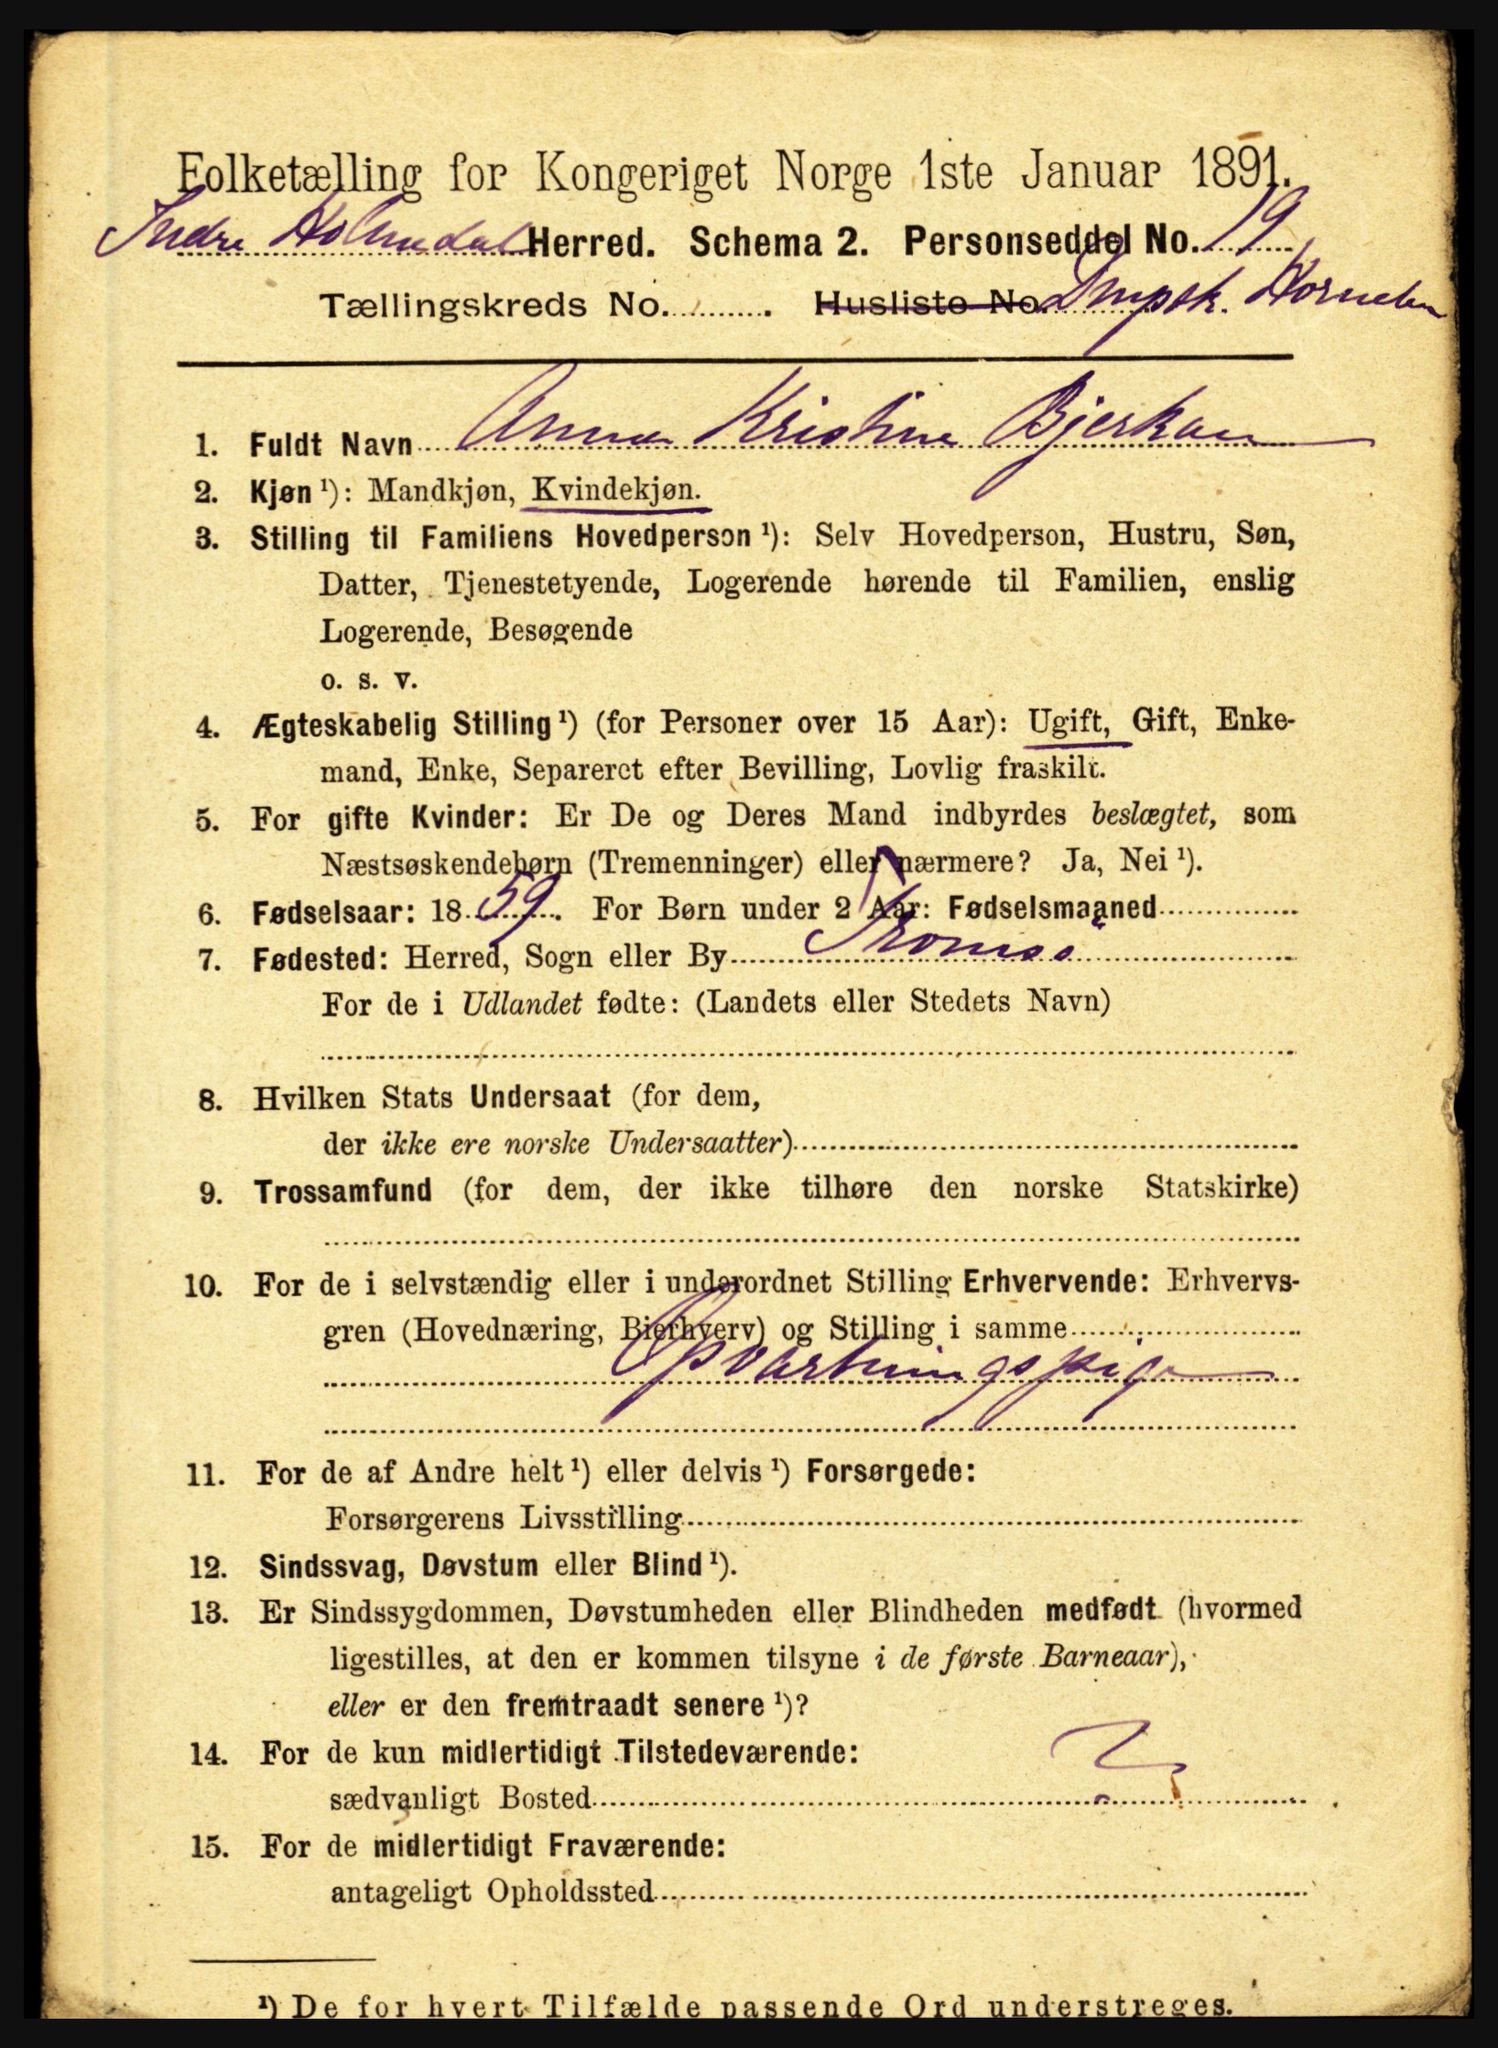 Folketælling for Kongeriget Norge 1ste Januar 1891.
Indre Holmedal Herred. Schema 2. Personseddel No. 19
Tællingskreds No. ........ . Husliste No. Dmpsk. Hornelen
1. Fuldt Navn Anna Kristine Bjerkan
2. Kjøn ¹): Mandkjøn, Kvindekjøn.
3. Stilling til Familiens Hovedperson ¹): Selv Hovedperson, Hustru, Søn,
Datter, Tjenestetyende, Logerende hørende til Familien, enslig
Logerende, Besøgende
o. s. v.
4. Ægteskabelig Stilling ¹) (for Personer over 15 Aar): Ugift, Gift, Enke-
mand, Enke, Separeret efter Bevilling, Lovlig fraskilt.
5. For gifte Kvinder: Er De og Deres Mand indbyrdes beslægtet, som
Næstsøskendebørn (Tremenninger) eller nærmere? Ja, Nei ¹).
6. Fødselsaar: 1859. For Børn under 2 Aar: Fødselsmaaned
7. Fødested: Herred, Sogn eller By Tromsö
For de i Udlandet fødte: (Landets eller Stedets Navn)
8. Hvilken Stats Undersaat (for dem,
der ikke ere norske Undersaatter)
9. Trossamfund (for dem, der ikke tilhøre den norske Statskirke)
10. For de i selvstændig eller i underordnet Stilling Erhvervende: Erhvervs-
gren (Hovednæring, Bierhverv) og Stilling i samme
Opvartningspige
11. For de af Andre helt ¹) eller delvis ¹) Forsørgede:
Forsørgerens Livsstilling
12. Sindssvag, Døvstum eller Blind ¹).
13. Er Sindssygdommen, Døvstumheden eller Blindheden medfødt (hvormed
ligestilles, at den er kommen tilsyne i de første Barneaar),
eller er den fremtraadt senere ¹)?
14. For de kun midlertidigt Tilstedeværende:
sædvanligt Bosted ?
15. For de midlertidigt Fraværende:
antageligt Opholdssted
¹) De for hvert Tilfælde passende Ord understreges.